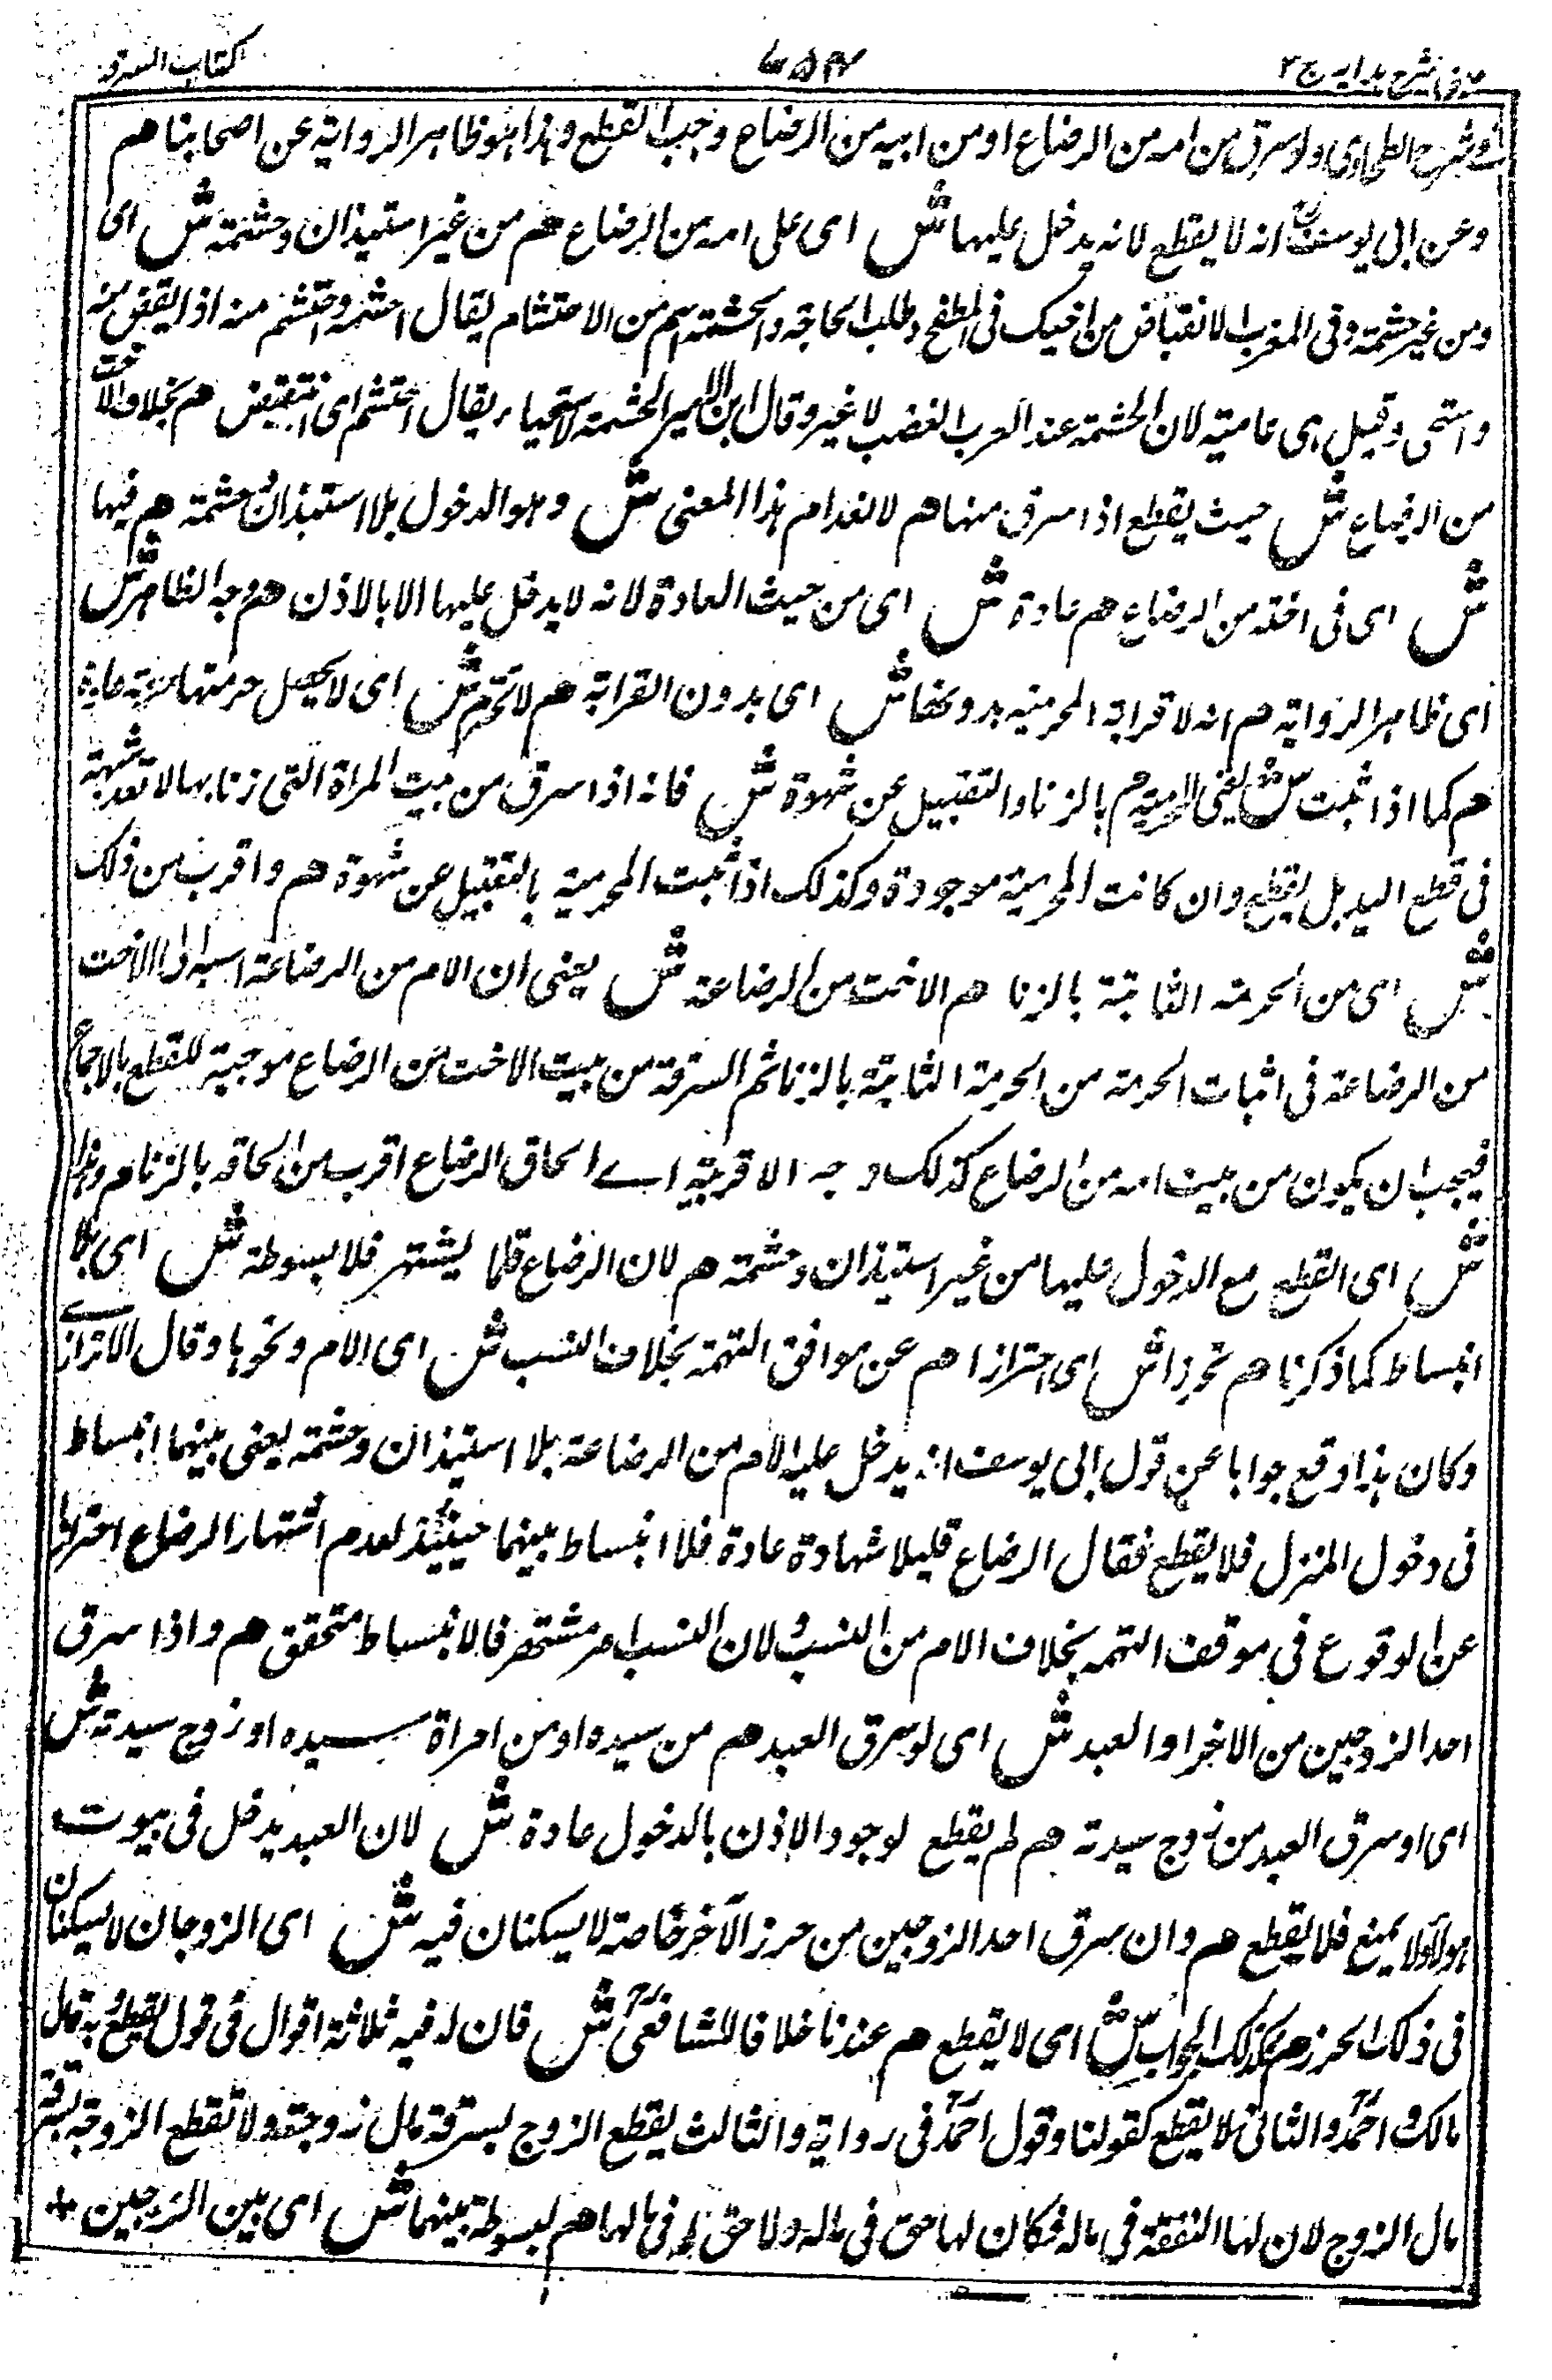 عينى شرح هدايه ج ٢
كتاب السرقة
شرح الطحاوى ولو سرق من امه من الرضاع او من ابيه من الرضاع وجب القطع وهذا هو ظاهر الرواية عن اصحابنا هم
وعن ابى يوسف انه لا يقطع لانه يدخل عليها ش اى على امه من الرضاع هم من غير استيذان وحشمة ش اى
ومن غير حشمة وفى المغرب الانقباض من اخيك فى المطعم وطلب الحاجة والحشمة اسم من الاحتشام يقال احشمه واحتشم منه اذا انقبض منه
واستحى وقيل هى عامية لان الحشمة عند العرب الغضب لا غير وقال ابن الاثير الحشمة الاستحياء يقال احتشم اى انقبض هم بخلاف الاخت
من الرضاع ش حيث يقطع اذا سرق منها هم لانعدام هذا المعنى ش وهو الدخول بلا استيذان وحشمة هم فيها
ش اى فى اخته من الرضاع هم عادة ش اى من حيث العادة لانه لا يدخل عليها الا بالاذن هم وجه الظاهر ش
اى ظاهر الرواية هم انه لا قرابة والمحرمية بدونها ش اى بدون القرابة هم لا تحترم ش اى لا يحصل حرمتها مزية عادة
هم كما اذا ثبت ش يعنى المحرمية هم بالزنا والتقبيل عن شهوة ش فانه اذا سرق من بيت المراة التى زنا بها لا تعد شبهة
فى قطع اليد بل يقطع وان كانت المحرمية موجودة وكذلك اذا ثبت المحرمية بالتقبيل عن شهوة هم واقرب من ذلك
ش اى من الحرمة الثابتة بالزنا هم الاخت من الرضاعة ش يعنى ان الام من الرضاعة اشبه الى الاخت
من الرضاعة فى اثبات الحرمة من الحرمة الثابتة بالزنا ثم السرقة من بيت الاخت من الرضاع موجبة للقطع بالاجماع
فيجب ان يكون من بيت امه من الرضاع كذلك وجه الاقربية اے الحاق الرضاع اقرب من الحاقه بالزنا هم وهذا
ش اى القطع مع الدخول عليها من غير استيذان وحشمة هم لان الرضاع قلما يشتهر فلا بسوطة ش اى بلا
انبساط كما ذكرنا هم تحرزا ش اى احترازا هم عن موافق التهمة بخلاف النسب ش اى الام ونحوها وقال الاترازے
وكان هذا وقع جوابا عن قول ابى يوسف انه يدخل عليه الام من الرضاعة بلا استيذان وحشمة يعنى بينهما انبساط
فى دخول المنزل فلا يقطع فقال الرضاع قليلا شهادة عادة فلا انبساط بينهما حينئذ لعدم اشتهار الرضاع احترازا
عن الوقوع فى موقف التهمه بخلاف الام من النسب لان النسب امر مشتهر فالانبساط متحقق هم واذا سرق
احد الزوجين من الاخر او العبد ش اى لو سرق العبد هم من سيده او من امراة سيده او زوج سيدته ش
اى او سرق العبد من زوج سيدته هم لم يقطع لوجود الاذن بالدخول عادة ش لان العبد يدخل فى بيوت
هولاء ولا يمنع فلا يقطع هم وان سرق احد الزوجين من حرز الآخر خاصة لا يسكنان فيه ش اى الزوجان لا يسكنان
فى ذلك الحرز هم فكذلك الجواب ش اى لا يقطع هم عندنا خلافا للشافعى ش فان له فيه ثلاثة اقوال فى قول يقطع وبه قال
مالك واحمد والثانى لا يقطع كقولنا وقول احمد فى رواية والثالث يقطع الزوج بسرقة مال زوجته ولا تقطع الزوجة بسرقة
مال الزوج لان لها النفقة فى ماله فكان لها حق فى ماله ولا حق له فى مالها هم لبسوطة بينهما ش اى بين الزوجين